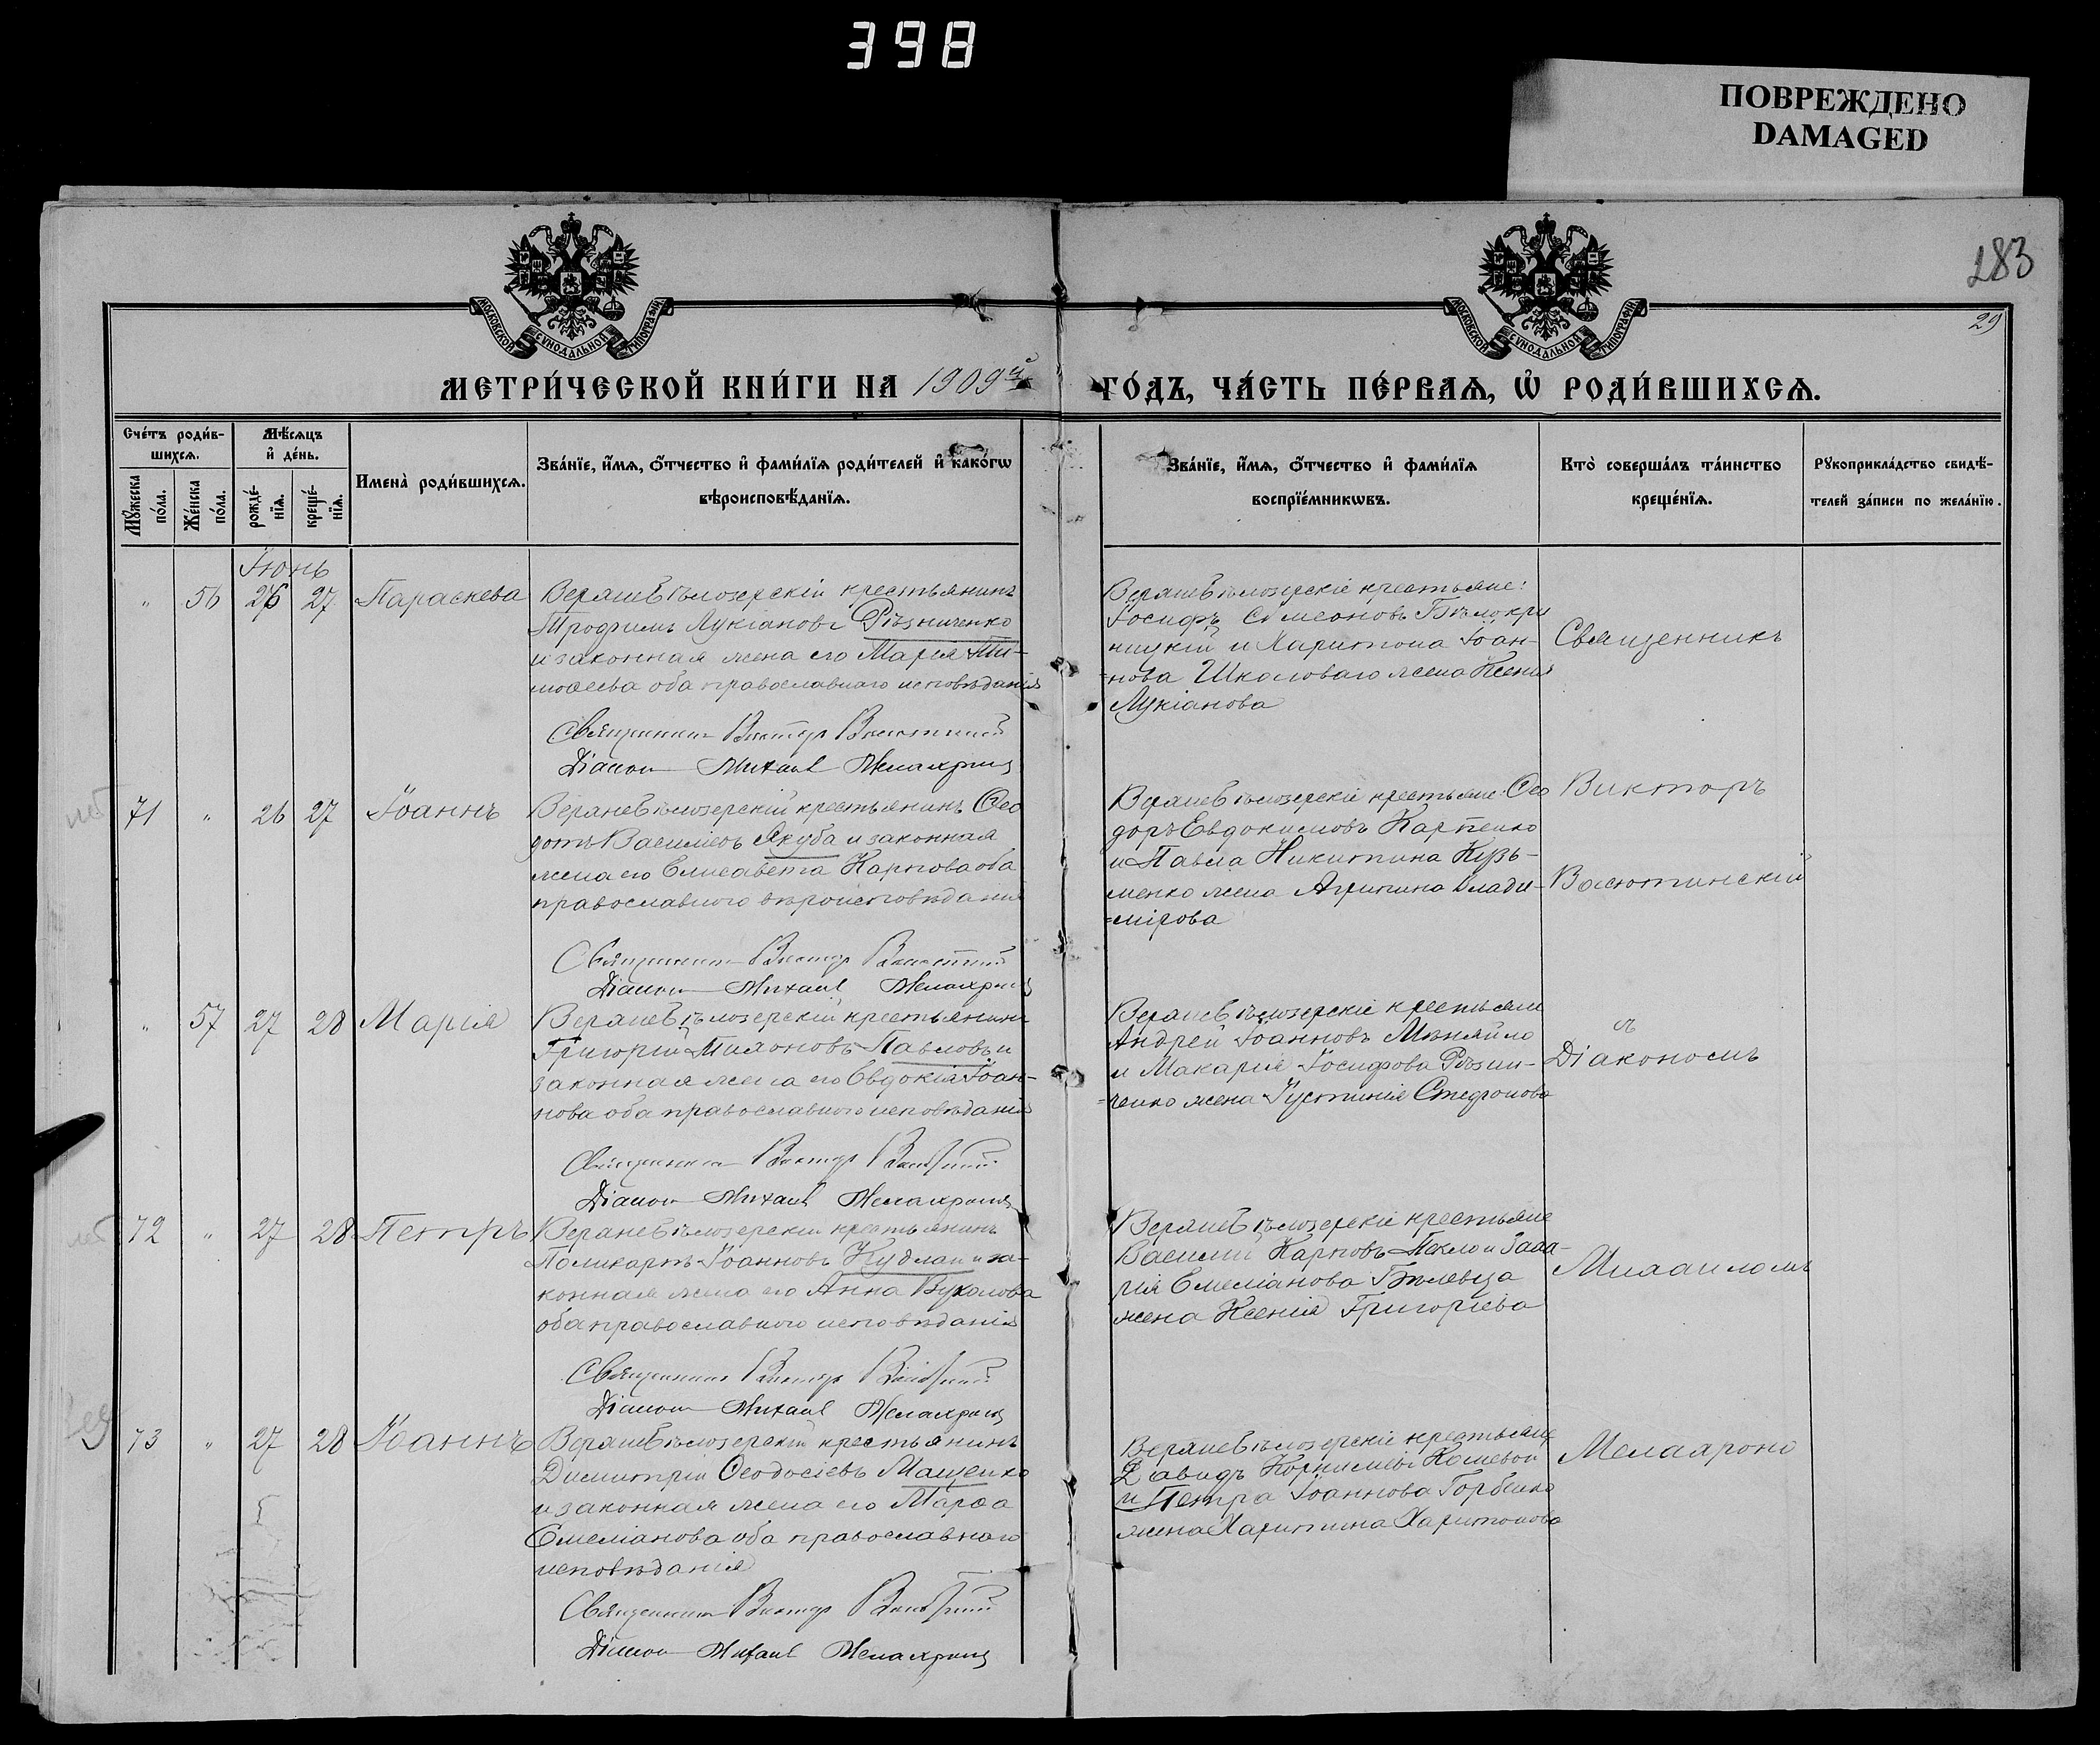 398
ПОВРЕЖДЕНО
DAMAGED
283
29
МОСКОВСКОЙ СѴНОДАЛЬНОЙ ТИПОГРАФІИ
МОСКОВСКОЙ СѴНОДАЛЬНОЙ ТИПОГРАФІИ
МЕТРИ́ЧЕСКОЙ КНИ́ГИ НА 1909й
ГО́ДЪ, ЧА́СТЬ ПЕ́РВАЯ, Ѡ҆ РОДИ́ВШИХСЯ.
Сче́тъ роди́в-
шихся.
Мѣ́сяцъ
и҆ де́нь.
Мꙋ́жеска по́ла.
Же́нска по́ла.
рожде́-
нїя.
креще́-
нїя.
Имена̀ роди́вшихся.
Зва́нїе, и҆́мя, ѻ҆́тчество и҆ фами́лїя роди́телей и҆ како́гѡ
вѣроисповѣ́данїя.
Зва́нїе, и҆́мя, ѻ҆́тчество и҆ фами́лїя
воспрїе́мникѡвъ.
Кто̀ соверша́лъ та́инство
креще́нїя.
Рꙋкоприкла́дство свидѣ́-
телей за́писи по жела́нїю.
Іюнь
" 56 26 27 Параскева
Верхнебѣлозерскій крестьянинъ
Трофимъ Лукіановъ Рѣзниченко
и законная жена его Марія Ти-
моѳеева оба православнаго исповѣданія
Священникъ Викторъ Васютинскій
Діаконъ Михаилъ Желахронъ
Верхнебѣлозерскіе крестьяне:
Іосифъ Симеоновъ Бѣлокри
ницкій и Харитона Іоан-
=нова Школоваго жена Ксенія
Лукіанова
Священникъ
71 " 26 27 Іоаннъ
Верхнебѣлозерскій крестьянинъ Ѳео
дотъ Василіевъ Якуба и законная
жена его Елисавета Карпова оба
православнаго вѣроисповѣданія
Священникъ Викторъ Васютинскій
Діаконъ Михаилъ
Верхнебѣлозерскіе крестьяне: Ѳео
доръ Евдокимовъ Карпенко
и Павла Никитина Кузь-
менко жена Агрипина Влади-
=мірова
Викторъ
Васютинскій
" 57 27 28 Марія
Верхнебѣлозерскій крестьянинъ
Григорій Тихоновъ Павловъ и
законная жена его Евдокія Іоан-
нова оба православнаго исповѣданія
Священникъ Викторъ Васютинскій
Діаконъ Михаилъ
Верхнебѣлозерскіе крестьяне
Андрей Іоанновъ Мѣняйло
и Макарія Іосифова Рѣзни-
=ченко жена Іустинія Стефанова
съ
Діакономъ
72 " 27 28 Петръ
Верхнебѣлозерскій крестьянинъ
Поликарпъ Іоанновъ Кудлай и за-
конная жена его Анна Вуколова
оба православнаго исповѣданія
Священникъ Викторъ Васютинскій
Діаконъ Михаилъ
Верхнебѣлозерскіе крестьяне
Василій Карповъ Пекло и Заха-
рія Емеліанова Бѣлевца
жена Ксенія Григоріева
Михаиломъ
73 " 27 28 Іоаннъ
Верхнебѣлозерскій крестьянинъ
Димитрій Ѳеодосіевъ Мащенко
и законная жена его Марѳа
Емеліанова оба православнаго
исповѣданія
Священникъ Викторъ Васютинскій
Діаконъ Михаилъ
Верхнебѣлозерскіе крестьяне
Давидъ Корниліевъ Кошевой
и Петра Іоаннова Горбенко
жена Харитина Харитонова